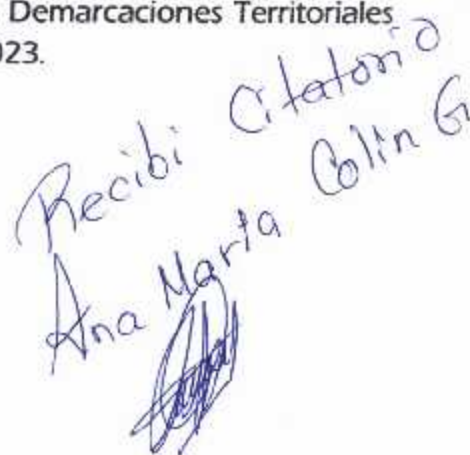 Demarcaciones Territoriales
023.
Recibi Citatorio
Ana Maria Colin G